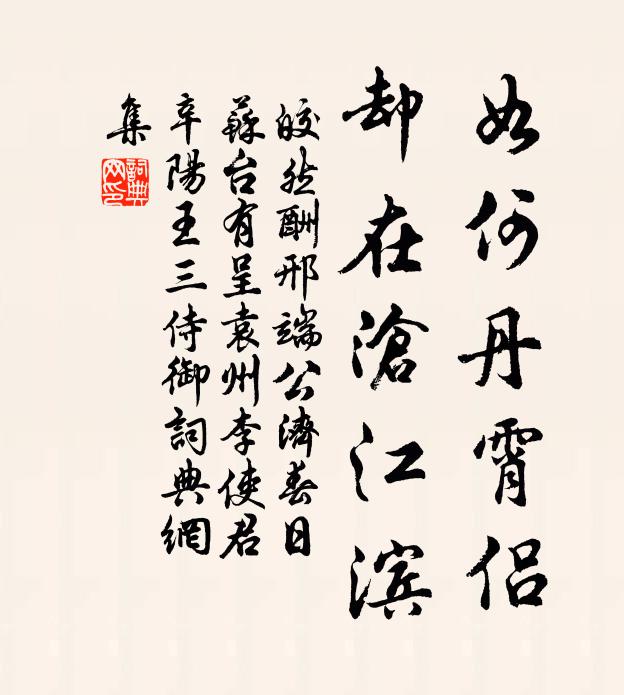 如何丹霄侣
却在滄江滨
皎然酬邢端公濟春日
蘇台有呈袁州李使君
辛陽王三侍御詞典網
集
詞典網印